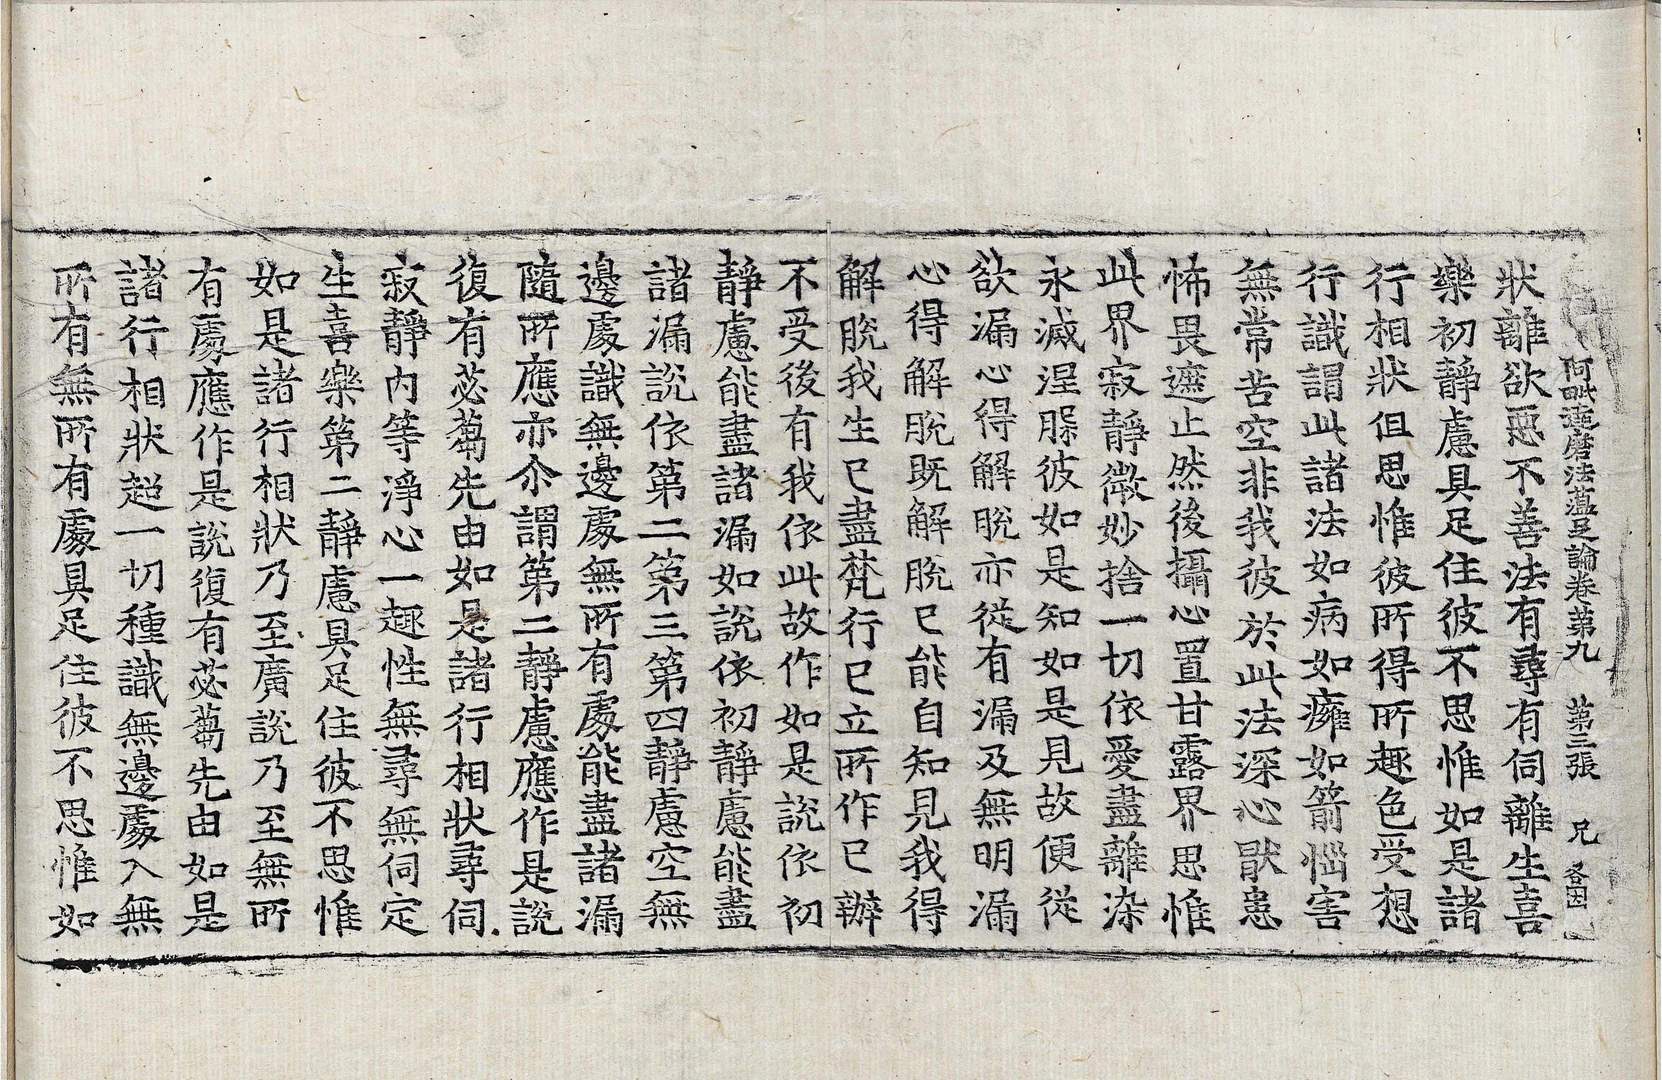 阿毗達磨法蘊足論卷第九 第三張 兄 各因
狀離欲惡不善法有尋有伺離生喜
樂初靜慮具足住彼不思惟如是諸
行相狀但思惟彼所得所趣色受想
行識謂此諸法如病如癰如箭惱害
無常苦空非我彼於此法深心猒患
怖畏遮止然後攝心置甘露界思惟
此界寂靜微妙捨一切依愛盡離染
永滅涅槃彼如是知如是見故便從
欲漏心得解脫亦從有漏及無明漏
心得解脫既解脫已能自知見我得
解脫我生已盡梵行已立所作已辦
不受後有我依此故作如是說依初
靜慮能盡諸漏如說依初靜慮能盡
諸漏說依第二第三第四靜慮空無
邊處識無邊處無所有處能盡諸漏
隨所應亦尒謂第二靜慮應作是說
復有苾蒭先由如是諸行相狀尋伺
寂靜內等淨心一趣性無尋無伺定
生喜樂第二靜慮具足住彼不思惟
如是諸行相狀乃至廣說乃至無所
有處應作是說復有苾蒭先由如是
諸行相狀超一切種識無邊處入無
所有無所有處具足住彼不思惟如